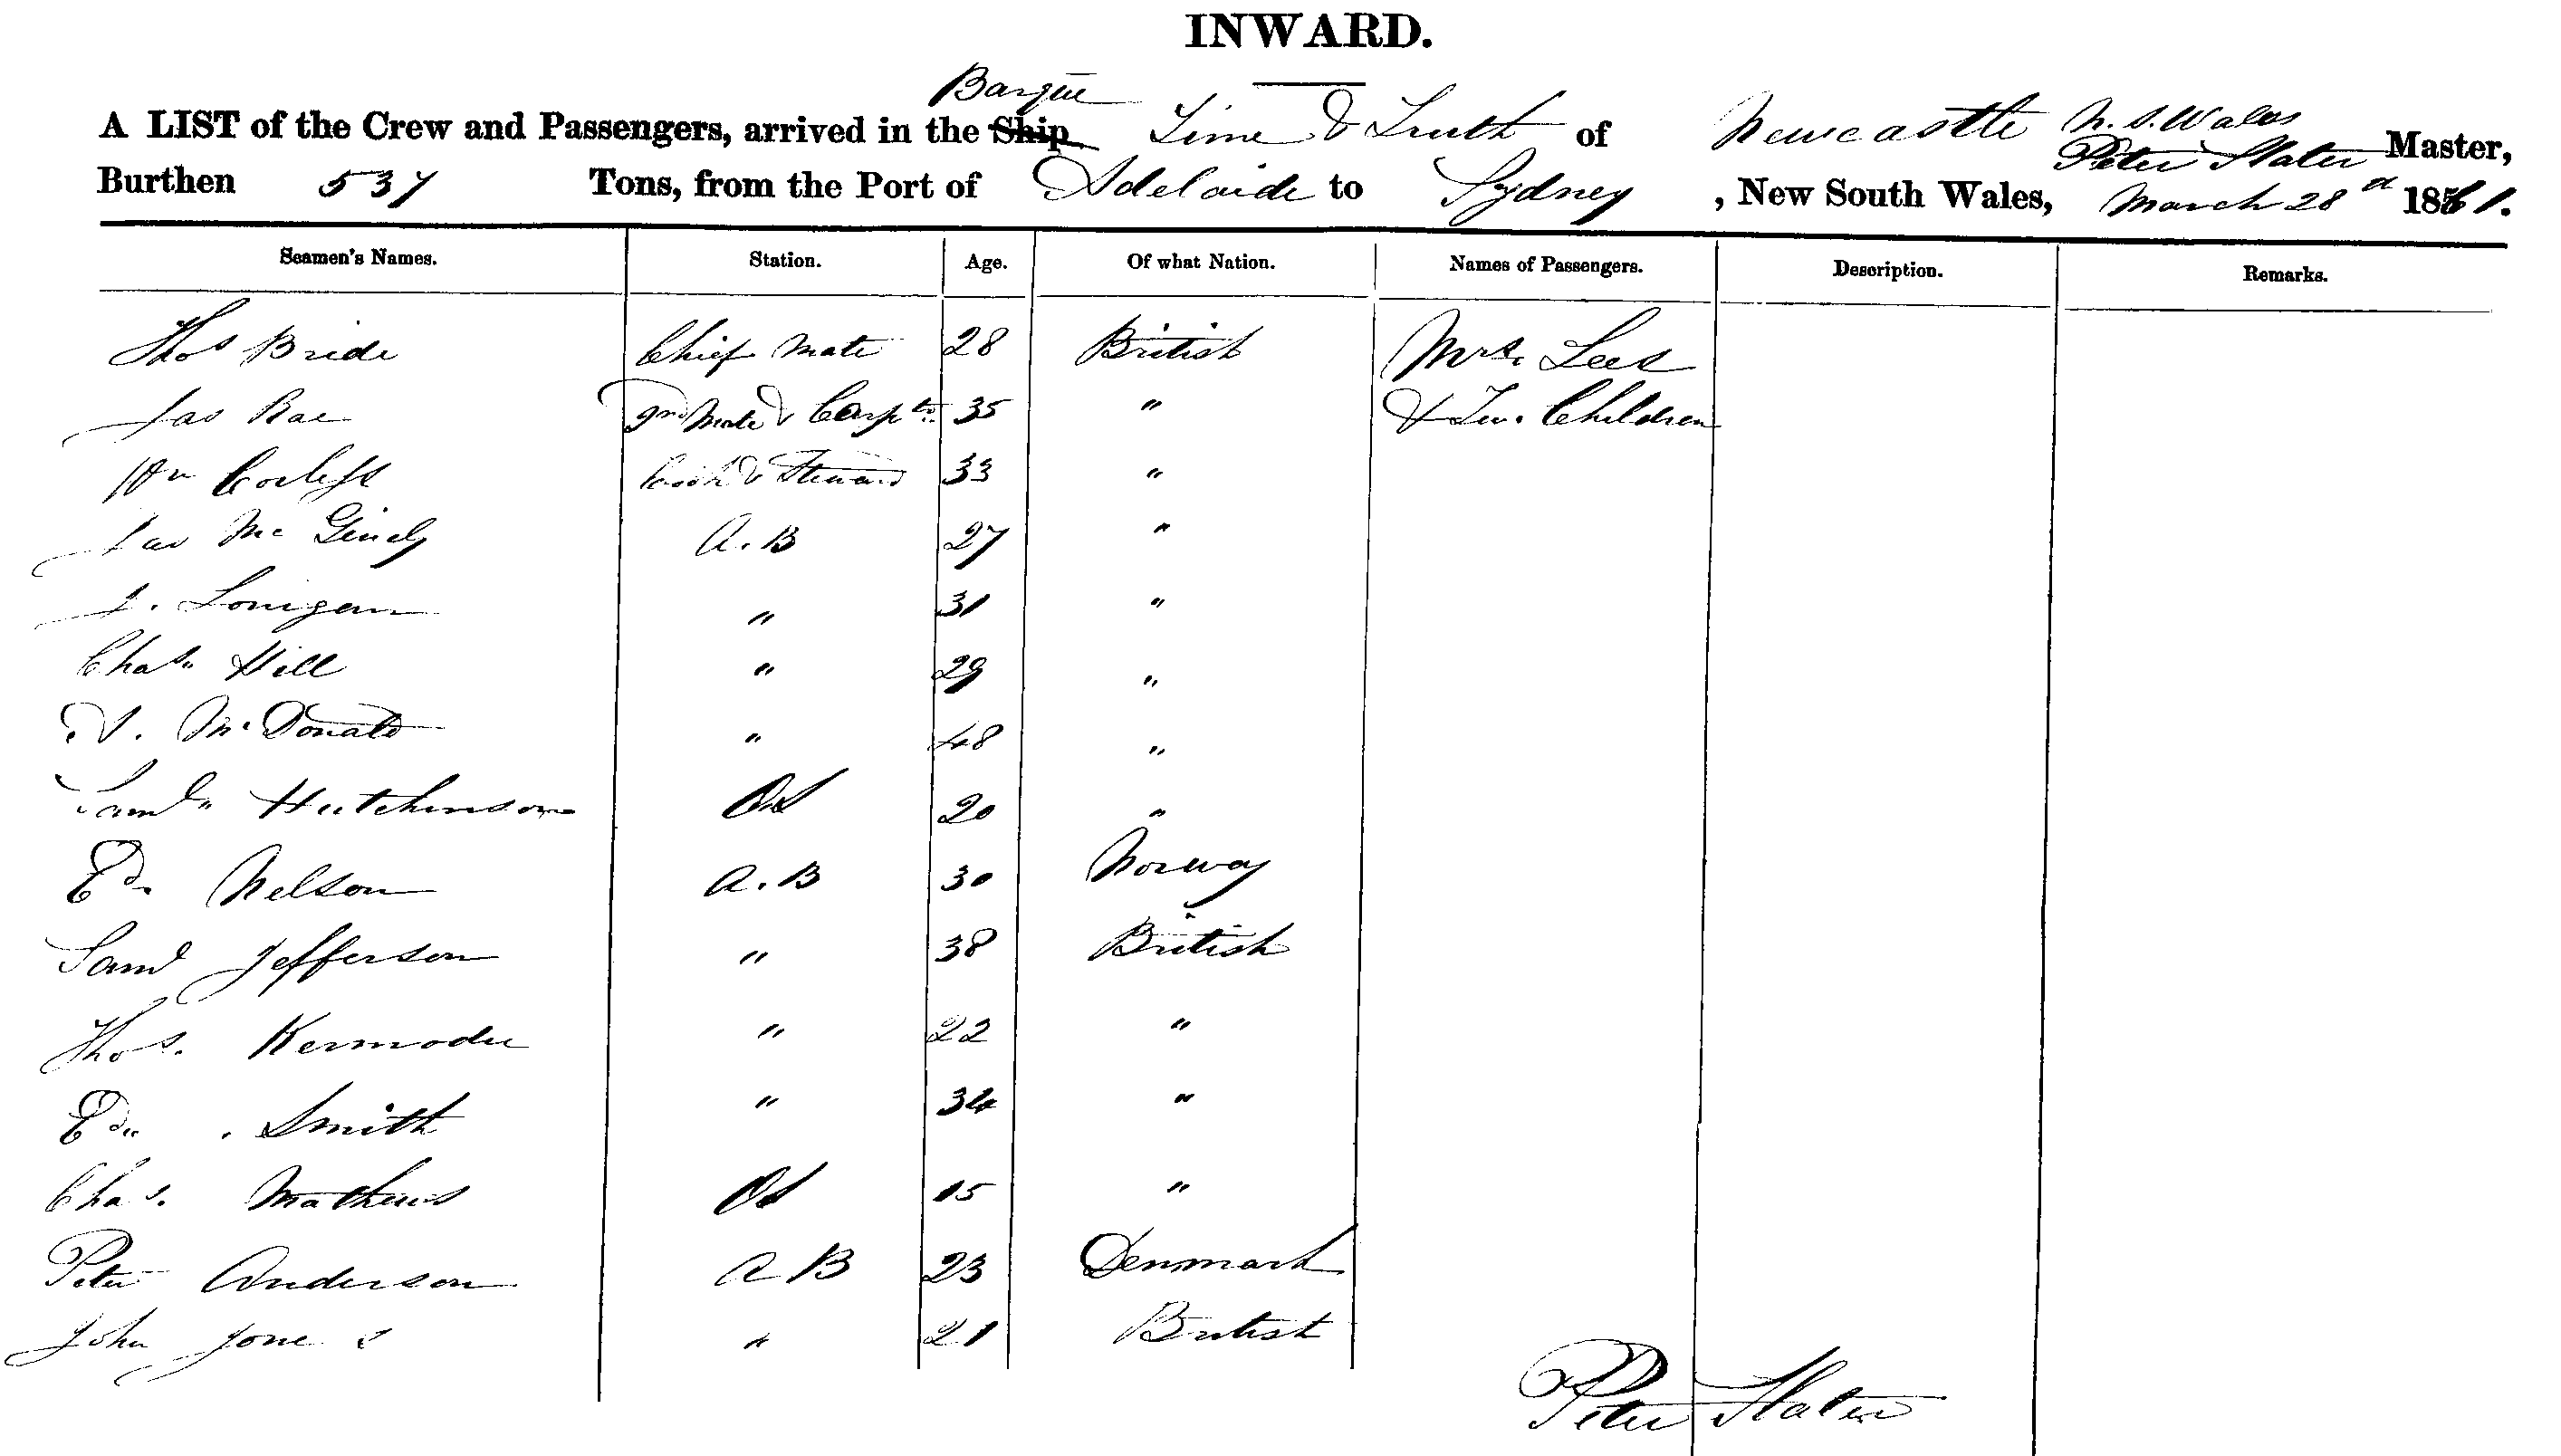 INWARD.
Barque
A LIST of the Crew and Passengers, arrived in the Ship Time & Truth of Newcastle N. S. Wales Peter Slater Master,
Burthen 537 Tons, from the Port of Adelaide to Sydney, New South Wales, March 28th 1861.
Seamen's Names. Station. Age. Of what Nation. Names of Passengers. Description. Remarks.
Thos Bride Chief Mate 28 British Mrs. Lees
Jas Rae 2nd Mate & Carptr 35 " & Two Children
Wm Corless Cook & Steward 33 "
Jas Mc Gindy A. B 27 "
J. Lonigan " 31 "
Chas. Hill " 29 "
A. McDonald " 48 "
Saml. Hutchinson OS 20 "
Ed. Nelson A. B 30 Norway
Saml Jefferson " 38 British
Thos. Kermode " 22 "
Ed. Smith " 34 "
Chas. Mathews OS 15 "
Peter Anderson A B 23 Denmark
John Jones " 21 British
Peter Slater